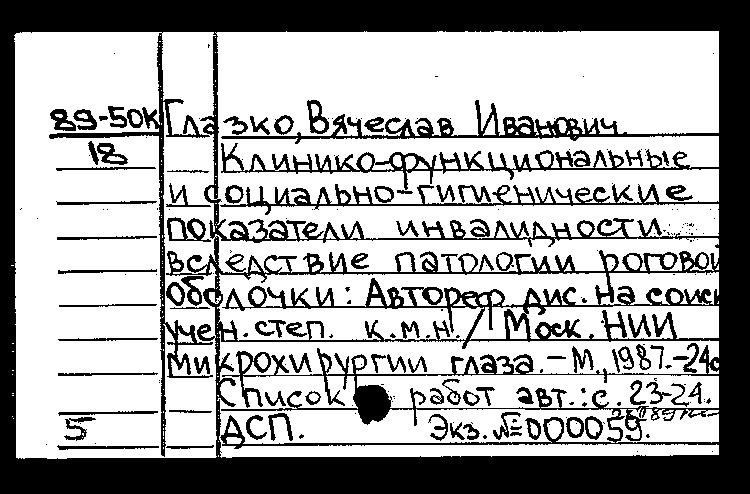 89-50К Глазко, Вячеслав Иванович.
18 Клинико-функциональные
и социально-гигиенические
показатели инвалидности
вследствие патологии роговой
оболочки: Автореф. дис. на соиск
учен. степ. к.м.н. / Моск. НИИ
микрохирургии глаза. - М., 1987. - 24с
Список работ авт.: с. 23-24.
5 ДСП. Экз. № 000059.